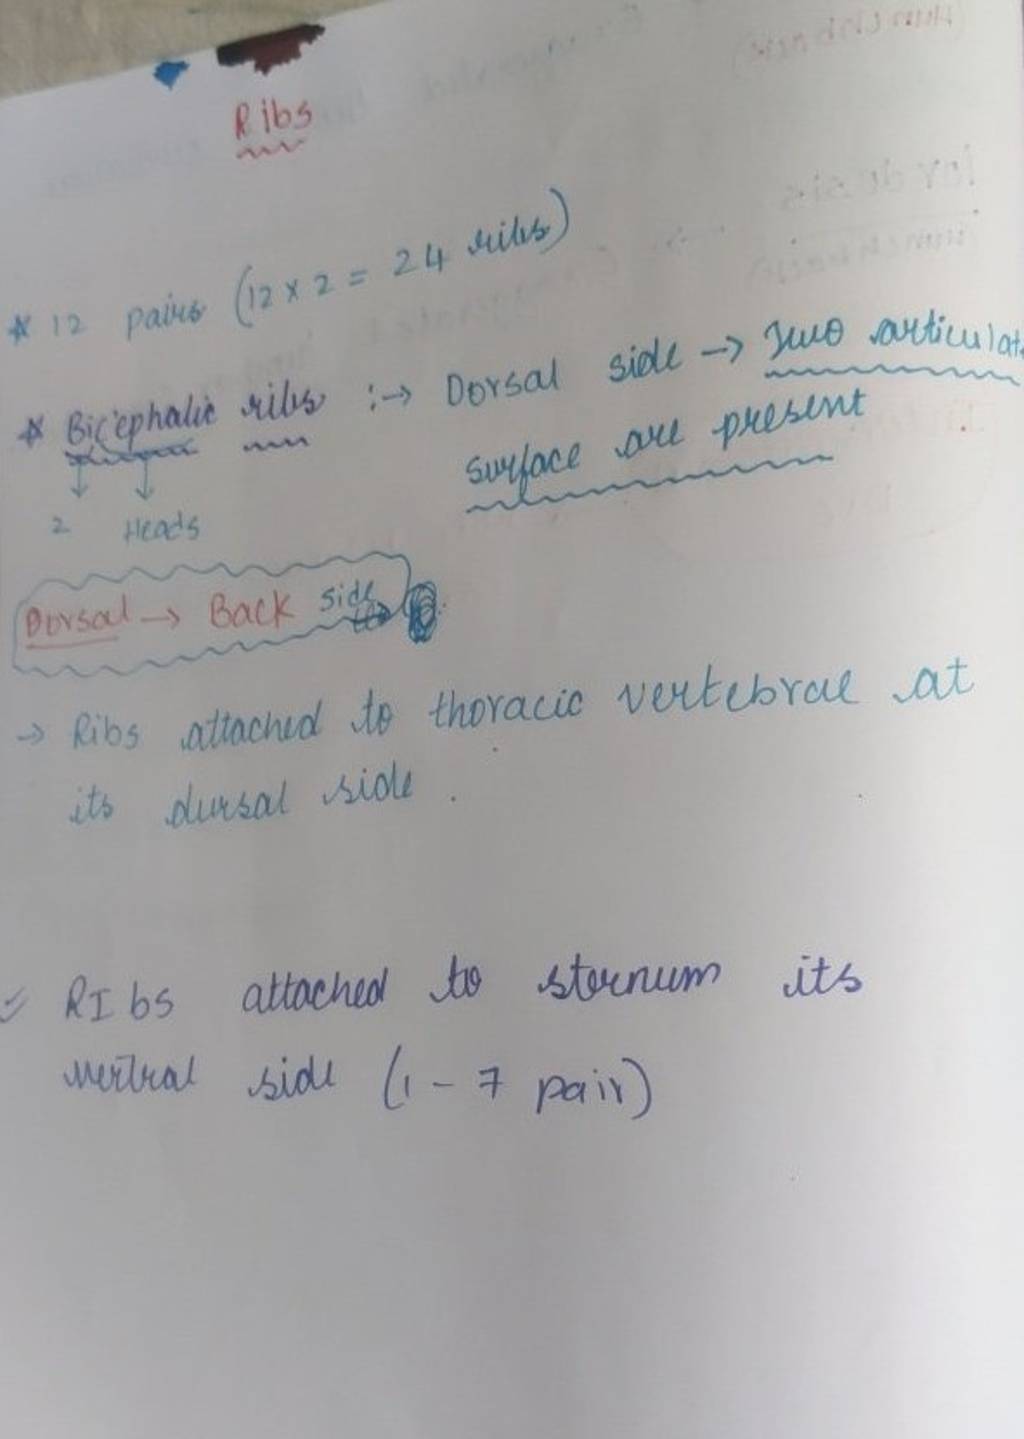 Ribs
* 12 pairs (12 x 2 = 24 ribs)
* Bicephalic ribs :→ Dorsal side → Two articulat
surface are present
2 Heads
Dorsal → Back side
→ Ribs attached to thoracic vertebrae at
its dursal side .
RIbs attached to sternum its
ventral side (1 - 7 pair)